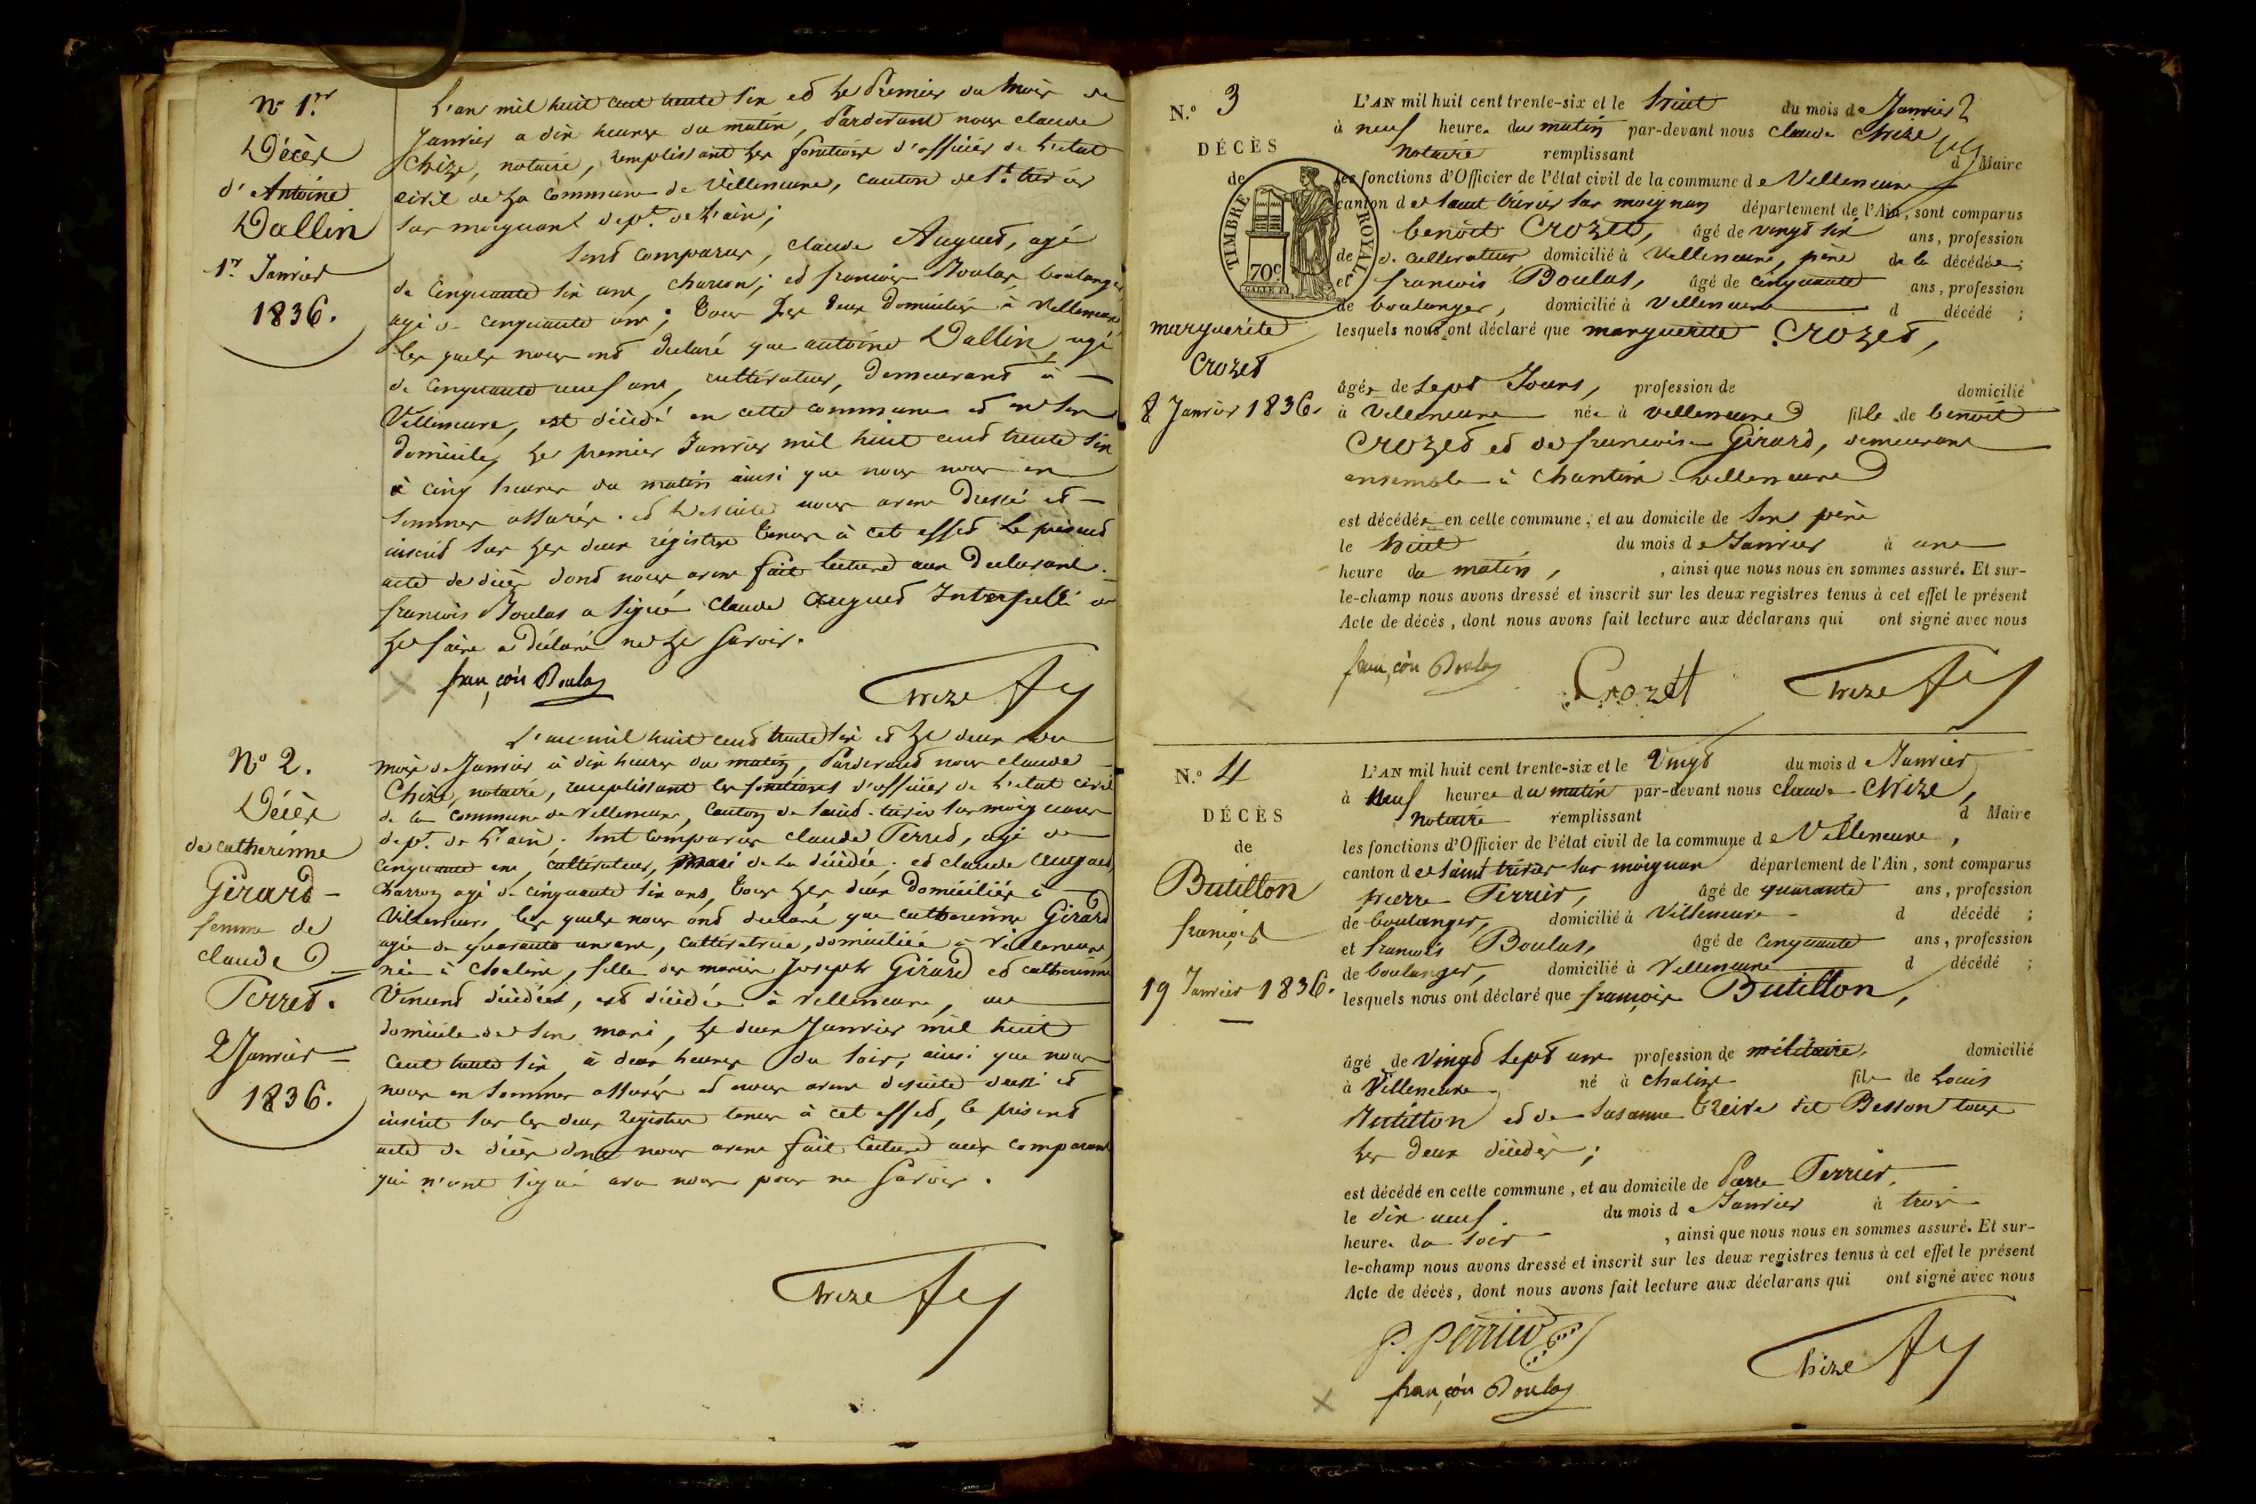 N° 1.er
Décès
d'Antoine
Dallin
1.r Janvier
1836.
L'an mil huit cent trente six et le Premier du mois de
Janvier a dix heures du matin, Pardevant nous claude
Chize, notaire, remplissant les fonctions d'officier de l'etat
civil de la commune de Villeneuve, canton de St. trivier
sur moignant dept. de l'ain;
sont comparus, claude Auguet, agé
de cinquante six ans, charron; et francois Boulas boulanger
agé de cinquante ans; tous les deux domiciliés à Villeneuve
les quels nous ont declaré que antoine Dallin, agé
de cinquante neuf ans, cultivateur, demeurant à
Villeneuve, est décédé en cette commune et en son
domicile, le premier Janvier mil huit cent trente six
à cinq heures du matin ainsi que nous nous en
sommes assurés. et de suite nous avons dressé et
inscrit sur les deux régistres tenus à cet effet le présent
acte de décès dont nous avons fait lecture aux declarans.
francois Boulas a signé claude auguet Interpellé de
le faire a déclaré ne le savoir.
françois Boulas
Chize
N° 2.
Décès
de catherinne
Girard
femme de
claude
Terret.
2 Janvier
1836.
L'an mil huit cent trente six et le deux du
mois de Janvier à dix heures du matin, Pardevant nous claude
Chize, notaire, remplissant les fonctions d'officier de l'etat civil
de la commune de Villeneuve, canton de saint-trivier sur moignans
dept. de l'ain; sont comparus claude Terret, agé de
cinquante ans, cultivateur, mari de la décédée; et claude auguet,
charron agé de cinquante six ans, tous les deux domiciliés à
Villeneuve, les quels nous ont declaré que catherinne Girard
agée de quarante un ans, cultivatrice, domiciliée à Villeneuve,
née à chaleins, fille des mariés Joseph Girard et catherinne
Vincent décédés, est décédée à Villeneuve, au
domicile de son mari, le deux Janvier mil huit
cent trente six, à deux heures du soir, ainsi que nous
nous en sommes assurés et nous avons desuite dressé et
inscrit sur les deux registres tenus à cet effet, le présent
acte de décès dont nous avons fait lecture aux comparans
qui n'ont signé avec nous pour ne savoir.
Chize
N.° 3
DÉCÈS
de
TIMBRE ROYAL
70 c
marguerite
Crozet
8 Janvier 1836.
L'AN mil huit cent trente-six et le huit du mois de Janvier
à neuf heures du matin par-devant nous claude Chize
notaire remplissant d Maire
les fonctions d'Officier de l'état civil de la commune de Villeneuve
canton de saint trivier sur moignan département de l'Ain, sont comparus
benoit Crozet, âgé de vingt six ans, profession
de cultivateur domicilié à Villeneuve, père de la décédée;
et francois Boulas, âgé de cinquante ans, profession
de boulanger, domicilié à Villeneuve d décédé ;
lesquels nous ont déclaré que marguerite Crozet,
âgée de sept Jours, profession de domicilié
à Villeneuve née à villeneuve fille de benoit
Crozet et de francoise Girard, demeurant
ensemble à Chanteins villeneuve
est décédée en cette commune, et au domicile de son père
le huit du mois de Janvier à une
heure du matin, , ainsi que nous nous en sommes assuré. Et sur-
le-champ nous avons dressé et inscrit sur les deux registres tenus à cet effet le présent
Acte de décès, dont nous avons fait lecture aux déclarans qui ont signé avec nous
françois Boulas
Crozet
Chize
N.° 4
DÉCÈS
de
Butillon
françois
19 Janvier 1836.
L'AN mil huit cent trente-six et le vingt du mois de Janvier
à neuf heures du matin par-devant nous claude Chize,
notaire remplissant d Maire
les fonctions d'Officier de l'état civil de la commune de Villeneuve,
canton de saint trivier sur moignan département de l'Ain, sont comparus
pierre Perrier, âgé de quarante ans, profession
de boulanger, domicilié à Villeneuve d décédé ;
et francois Boulas, âgé de cinquante ans, profession
de boulanger, domicilié à Villeneuve d décédé ;
lesquels nous ont déclaré que françois Butillon,
âgé de vingt sept ans profession de militaire, domicilié
à Villeneuve, né à chaleins fils de Louis
Butillon et de Susanne dit Besson tous
les deux décédés;
est décédé en cette commune, et au domicile de Pierre Perrier,
le dix neuf du mois de Janvier à trois
heures du soir , ainsi que nous nous en sommes assuré. Et sur-
le-champ nous avons dressé et inscrit sur les deux registres tenus à cet effet le présent
Acte de décès, dont nous avons fait lecture aux déclarans qui ont signé avec nous
P. Perrier
Chize
françois Boulas